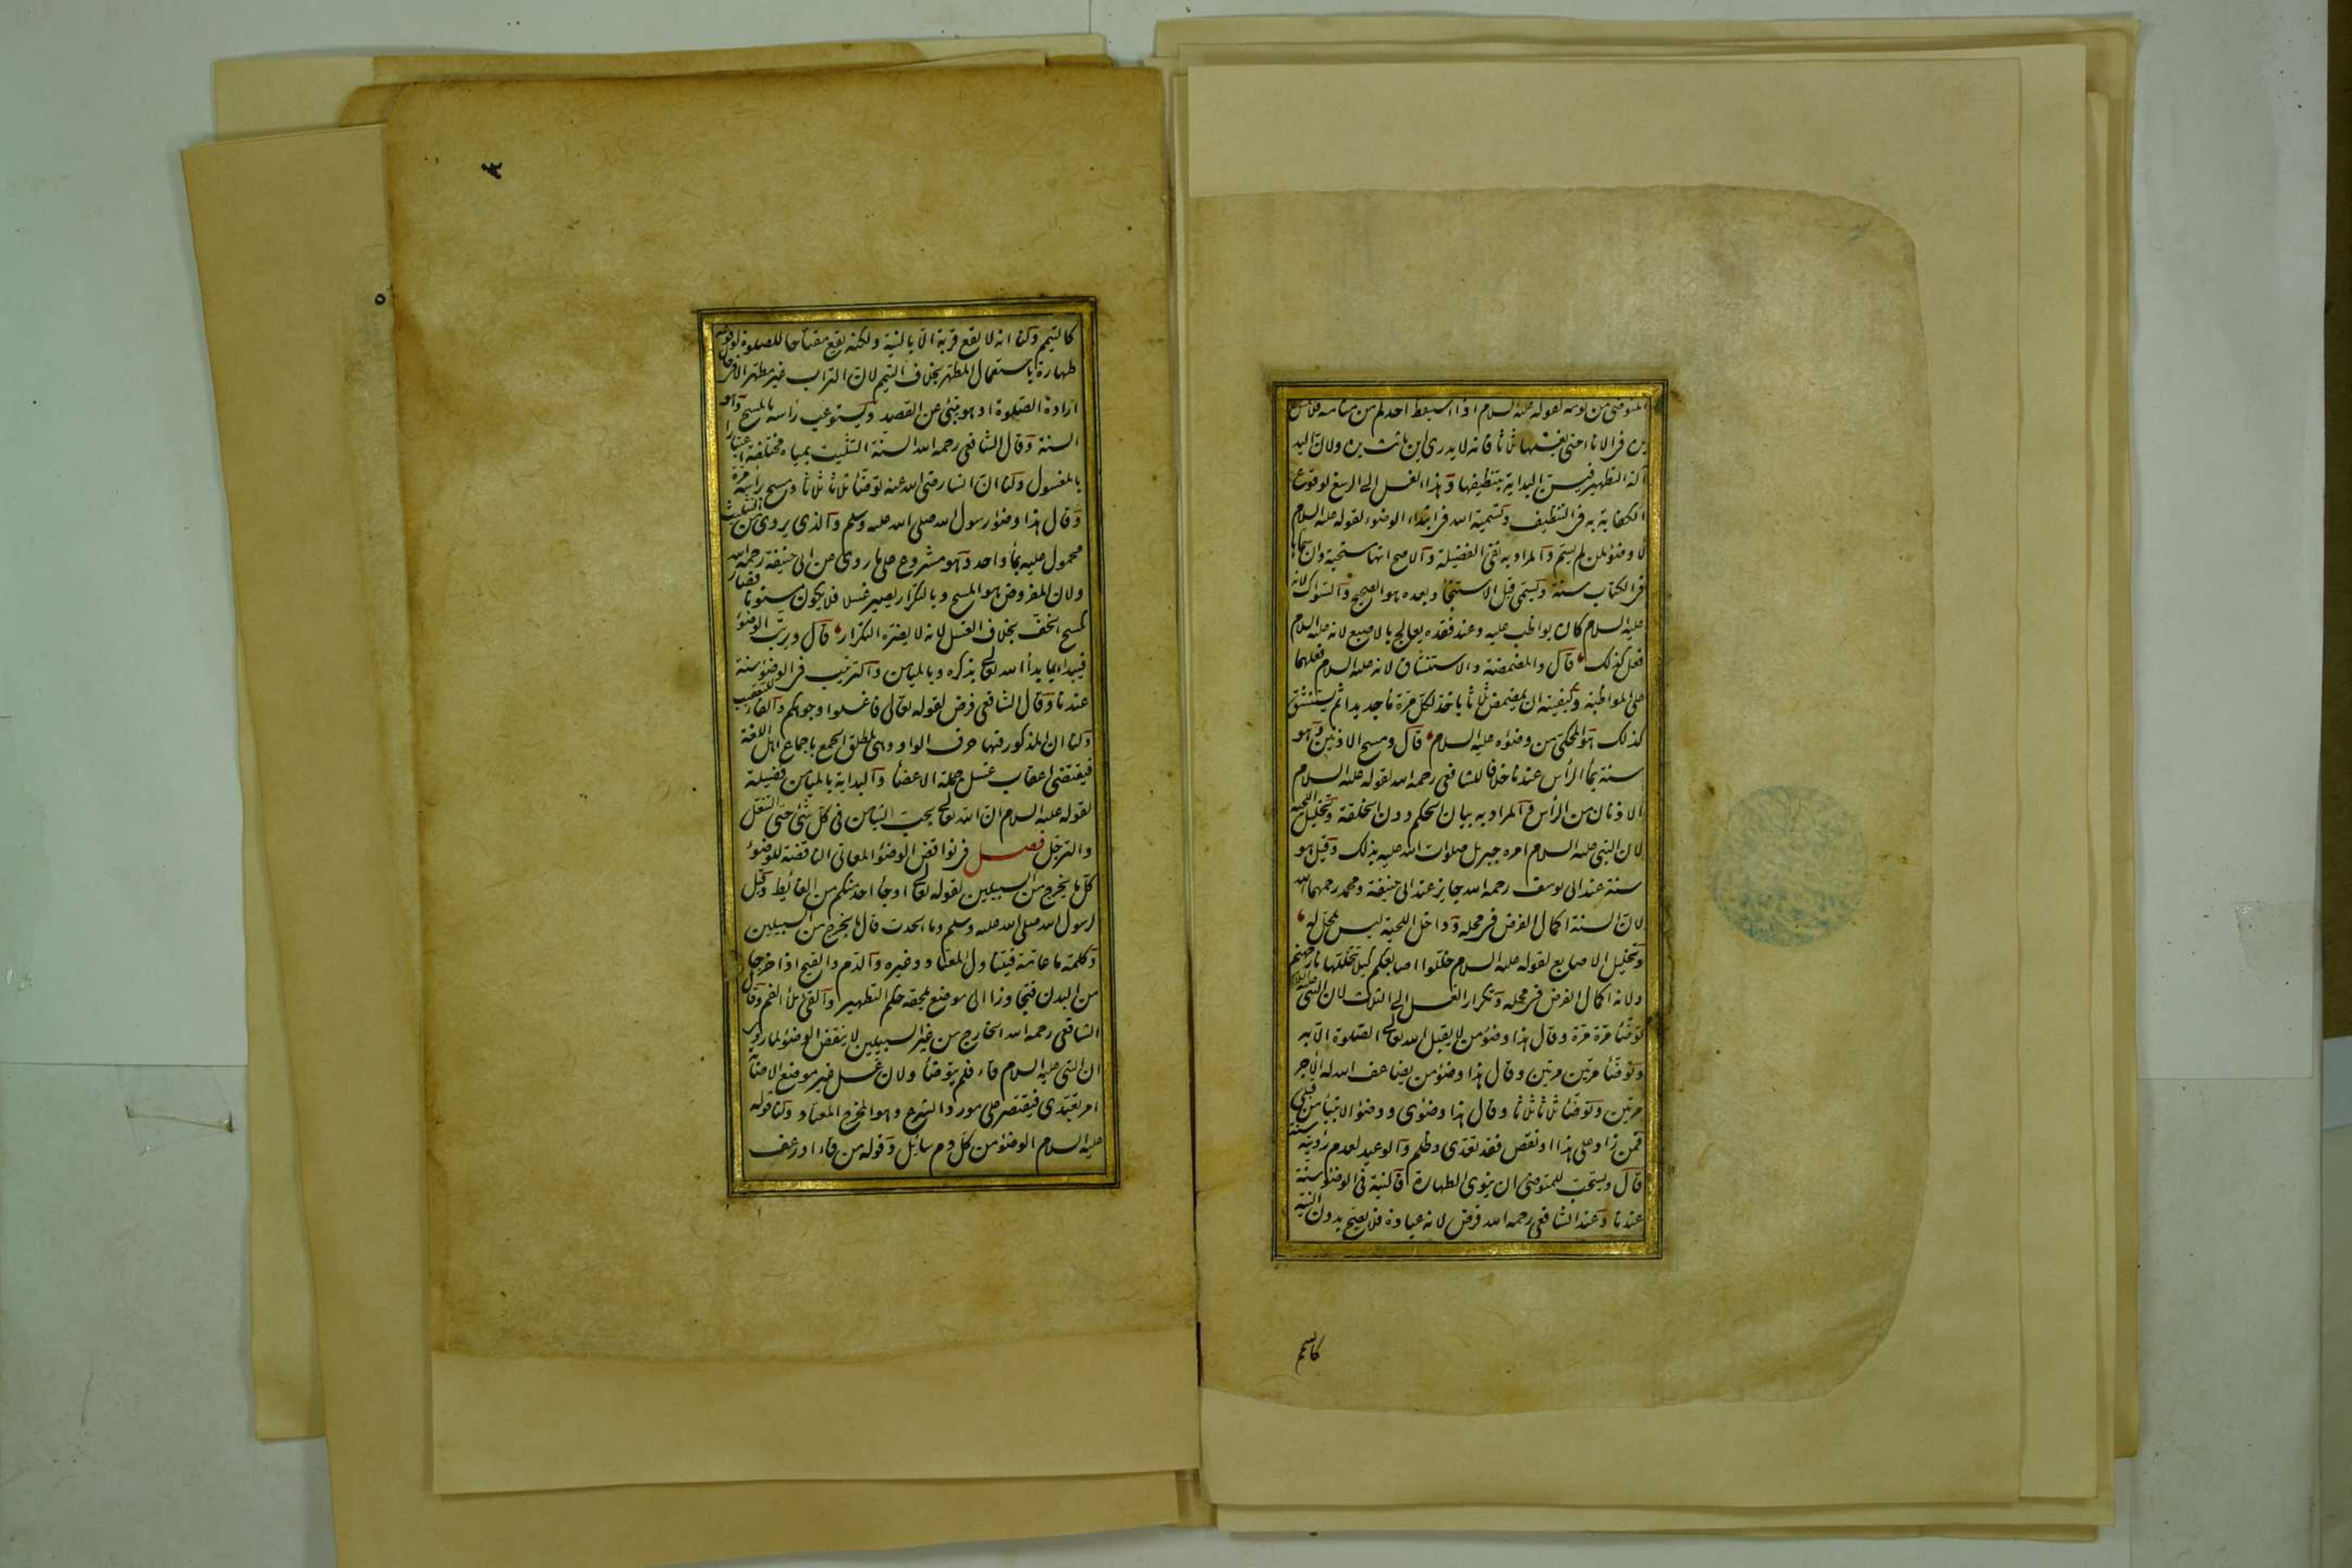 المتوضئ من نومه لقوله عليه السلام اذا استيقظ احدكم من منامه فلا يغمس
يده فى الاناء حتى يغسلها ثلاثا فانه لا يدرى اين باتت يده ولان اليد
آلة التطهير فيسن البداية بتنظيفها وهذا الغسل الى الرسغ لوقوع
الكفاية به فى التنظيف وتسمية الله فى ابتداء الوضوء لقوله عليه السلام
لا وضوء لمن لم يسم والمراد به نفى الفضيلة والاصح انها مستحبة وان سماها
فى الكتاب سنة ويسمى قبل الاستنجاء وبعده هو الصحيح والسواك لانه
عليه السلام كان يواظب عليه وعند فقده يعالج بالاصبع لانه عليه السلام
فعل كذلك قال والمضمضة والاستنشاق لانه عليه السلام فعلهما
على المواظبة وكيفيته ان يمضمض ثلاثا ياخذ لكل مرة ماء جديدا ثم يستنشق
كذلك هو المحكى من وضوءه عليه السلام قال ومسح الاذنين وهو
سنة بماء الرأس عندنا خلافا للشافعى رحمه الله لقوله عليه السلام
الاذنان من الرأس والمراد به بيان الحكم دون الخلقة وتخليل اللحية
لان النبى عليه السلام امره جبريل صلوات الله عليه بذلك وقيل هو
سنة عند ابى يوسف رحمه الله جايز عند ابى حنيفة ومحمد رحمهما الله
لان السنة اكمال الفرض فى محله وداخل اللحية ليس بمحل له
وتخليل الاصابع لقوله عليه السلام خللوا اصابعكم كيلا تخللها نار جهنم
ولانه اكمال الفرض فى محله وتكرار الغسل الى الثلاث لان النبى عليه السلام
توضأ مرة مرة وقال هذا وضوء من لا يقبل الله تعالى الصلوة الا به
وتوضأ مرتين مرتين وقال هذا وضوء من يضاعف الله له الاجر
مرتين وتوضأ ثلاثا ثلاثا وقال هذا وضوئى ووضوء الانبياء من قبلى
فمن زاد على هذا او نقص فقد تعدى وظلم والوعيد لعدم رؤيته سنة
قال ويستحب للمتوضئ ان ينوى الطهارة فالنية فى الوضوء سنة
عندنا وعند الشافعى رحمه الله فرض لانه عبادة فلا يصح بدون النية
كالتيمم
كالتيمم ولنا انه لا يقع قربة الا بالنية ولكنه يقع مفتاحا للصلوة لوقوعه
طهارة باستعمال المطهر بخلاف التيمم لان التراب غير مطهر الا فى حال
ارادة الصلوة او هو ينبئ عن القصد ويستوعب رأسه بالمسح وهو
السنة وقال الشافعى رحمه الله السنة التثليث بمياه مختلفة اعتبارا
بالمغسول ولنا ان انسا رضى الله عنه توضأ ثلاثا ثلاثا ومسح برأسه مرة
وقال هذا وضوء رسول الله صلى الله عليه وسلم والذى يروى من التثليث
محمول عليه بماء واحد وهو مشروع على ما روى عن ابى حنيفة رحمه الله
ولان المفروض هو المسح وبالتكرار يصير غسلا فلا يكون مسنونا فصار
كمسح الخف بخلاف الغسل لانه لا يضره التكرار قال ويرتب الوضوء
فيبدأ بما بدأ الله تعالى بذكره وبالميامن والترتيب فى الوضوء سنة
عندنا وقال الشافعى فرض لقوله تعالى فاغسلوا وجوهكم والفاء للتعقيب
ولنا ان المذكور فيها حرف الواو وهى لمطلق الجمع باجماع اهل اللغة
فيقتضى اعقاب غسل جملة الاعضاء والبداية بالميامن فضيلة
لقوله عليه السلام ان الله تعالى يحب التيامن فى كل شئ حتى التنعل
والترجل فصل فى نواقض الوضوء المعانى الناقضة للوضوء
كل ما يخرج من السبيلين لقوله تعالى او جاء احد منكم من الغائط وقيل
لرسول الله صلى الله عليه وسلم وما الحدث قال ما يخرج من السبيلين
وكلمة ما عامة فيتناول المعتاد وغيره والدم والقيح اذا خرجا
من البدن فتجاوزا الى موضع يلحقه حكم التطهير والقئ ملأ الفم وقال
الشافعى رحمه الله الخارج من غير السبيلين لا ينقض الوضوء لما روى
ان النبى عليه السلام قاء فلم يتوضأ ولان غسل غير موضع الاصابة
امر تعبدى فيقتصر على مورد الشرع وهو المخرج المعتاد ولنا قوله
عليه السلام الوضوء من كل دم سائل وقوله من قاء او رعف